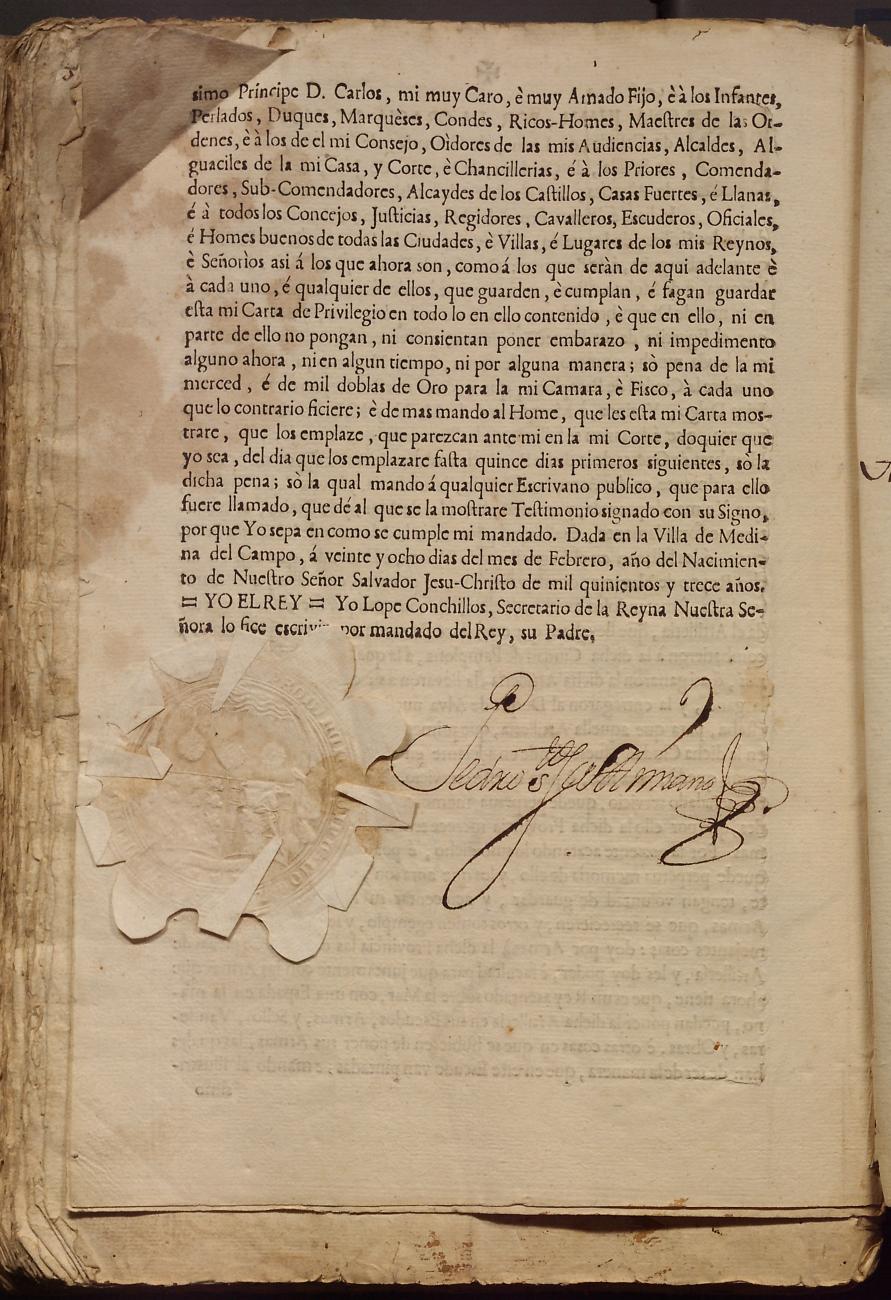 simo Príncipe D. Carlos, mi muy Caro, è muy Amado Fijo, è à los Infantes,
Perlados, Duques, Marquèses, Condes, Ricos-Homes, Maeſtres de las Or-
denes, è à los de el mi Consejo, Oìdores de las mis Audiencias, Alcaldes, Al-
guaciles de la mi Casa, y Corte, è Chancillerias, é à los Priores, Comenda-
dores, Sub-Comendadores, Alcaydes de los Caſtillos, Casas Fuertes, é Llanas,
é à todos los Concejos, Juſticias, Regidores, Cavalleros, Escuderos, Oficiales,
é Homes buenos de todas las Ciudades, è Villas, é Lugares de los mis Reynos,
è Señorìos asi á los que ahora son, como á los que seràn de aqui adelante è
à cada uno, é qualquier de ellos, que guarden, è cumplan, é fagan guardar
eſta mi Carta de Privilegio en todo lo en ello contenido, è que en ello, ni en
parte de ello no pongan, ni consientan poner embarazo, ni impedimento
alguno ahora, ni en algun tiempo, ni por alguna manera; sò pena de la mi
merced, é de mil doblas de Oro para la mi Camara, è Fisco, à cada uno
que lo contrario ficiere; è de mas mando al Home, que les eſta mi Carta mos-
trare, que los emplaze, que parezcan ante mi en la mi Corte, doquier que
yo sea, del dia que los emplazare faſta quince dias primeros siguientes, sò la
dicha pena; sò la qual mando á qualquier Escrivano publico, que para ello
fuere llamado, que dé al que se la moſtrare Teſtimonio signado con su Signo,
por que Yo sepa en como se cumple mi mandado. Dada en la Villa de Medi-
na del Campo, á veinte y ocho dias del mes de Febrero, año del Nacimien-
to de Nueſtro Señor Salvador Jesu-Chriſto de mil quinientos y trece años.
= YO EL REY = Yo Lope Conchillos, Secretario de la Reyna Nueſtra Se-
ñora lo fice escrivir por mandado del Rey, su Padre.
Pedro